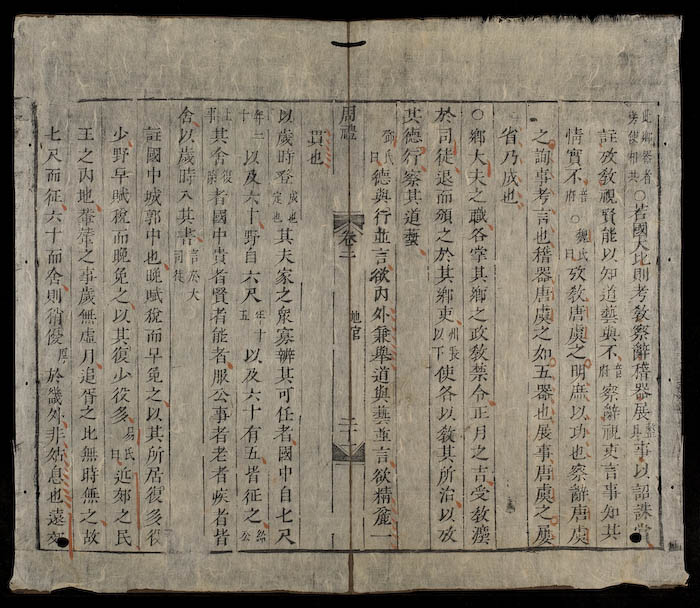 此鄉器者旁使相共○若國大比則考教察辭稽器展事以詔誅賞
註攷教視賢能以知道藝與不音府察辭視吏言事知其
情實不音府○魏氏曰攷教唐虞之明庶以功也察辭唐虞
之詢事考言也稽器唐虞之如五器也展事唐虞之屢
省乃成也
○鄉大夫之職各掌其鄉之政教禁令正月之吉受教灋
於司徒退而頒之於其鄉吏州長以下使各以教其所治以攷
其德行察其道藝
鄧氏曰德與行並言欲內外兼舉道與藝並言欲精麄一
周禮 卷二 地官
貫也
以歲時登成也定也其夫家之衆寡辨其可任者國中自七尺
年二十以及六十野自六尺年十五以及六十有五皆征之給公
上事其舍復除者國中貴者賢者能者服公事者老者疾者皆
舍以歲時入其書言於大司徒
註國中城郭中也晚賦稅而早免之以其所居復多役
少野早賦稅而晚免之以其復少役多易氏曰近郊之民
王之內地輦輦之事歲無虛月追胥之比無時無之故
七尺而征六十而舍則稍優厚於畿外非姑息也遠郊